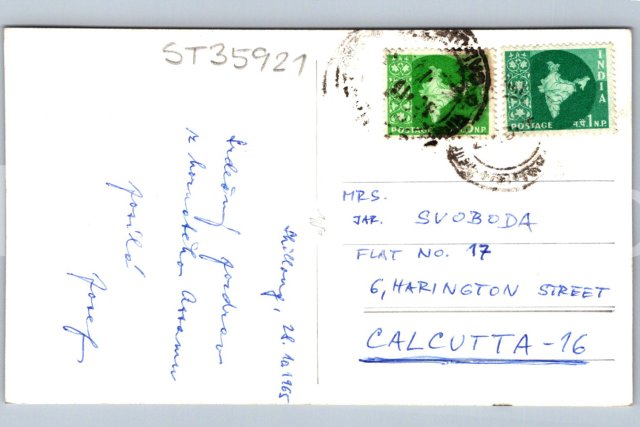 ST35921
INDIA
POSTAGE N.P.
POSTAGE न.पै.1 N.P.
Shillong, 28.10.1965
Srdečný pozdrav
z hornatého Assamu
posílá
Josef
MRS.
JAR. SVOBODA
FLAT NO. 17
6, HARINGTON STREET
CALCUTTA-16